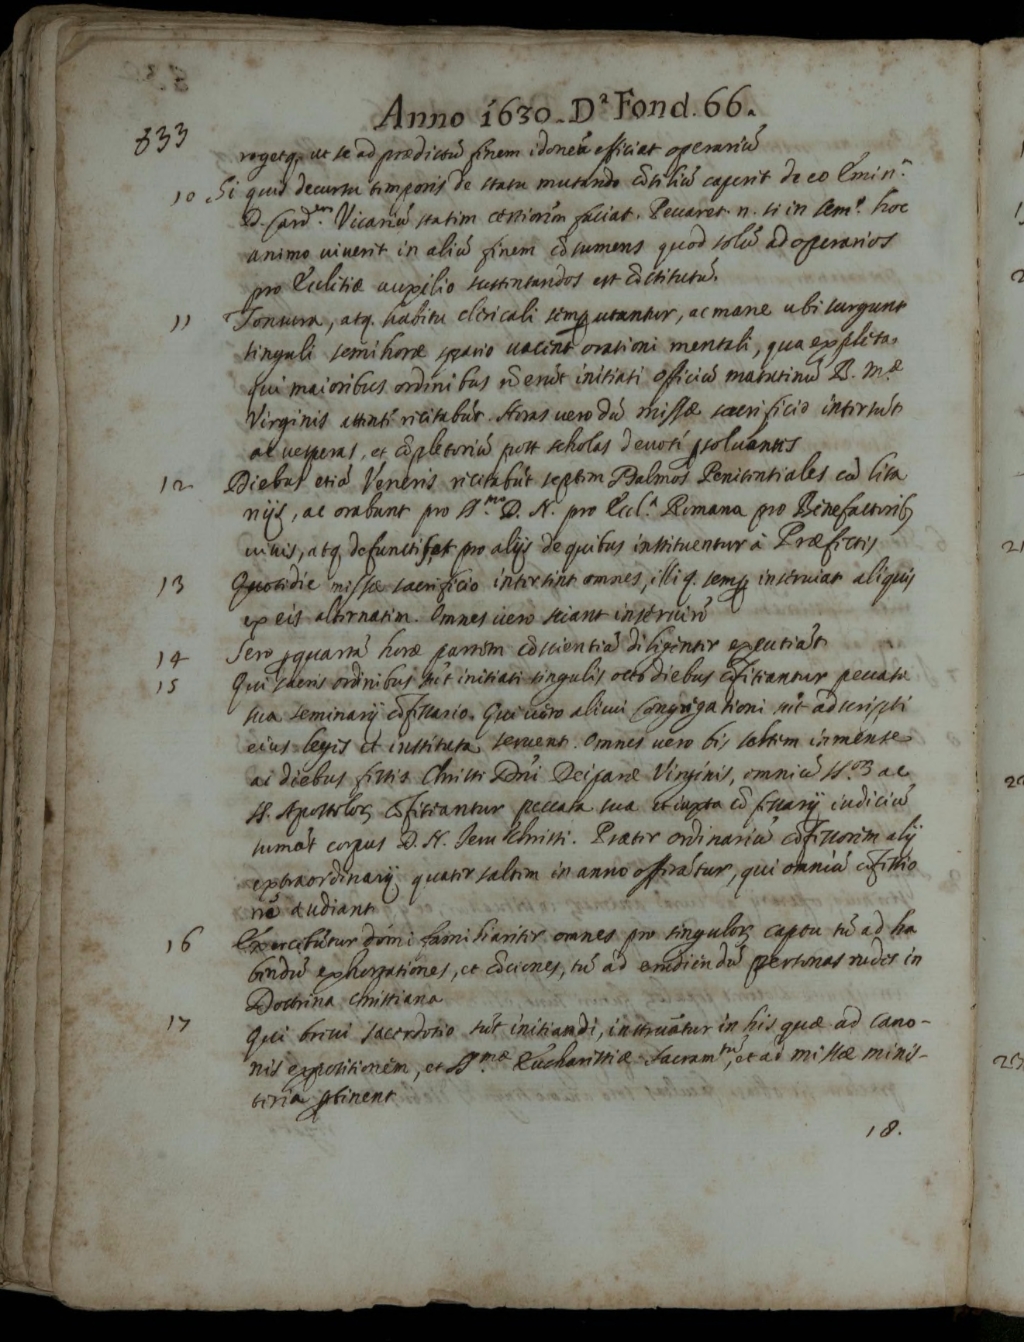 Anno 1630. Dª Fond. 66.
833
rogetq, ut se ad prædictũ finem idoneũ efficiat operariũ
10 Si quis decursu temporis de statu mutando cõsiliũ caperit de eo Emin.ᵐ
D. Card.ᵉᵐ Vicariũ statim certiorẽm faciat. Peccaret. n. si in sem.º hoc
animo viverit in aliũ finem cõsumens quod solũ ad operarios
pro Ecclesiæ auxilio sustentandos est cõstitutũ.
11 Tonsura, atq. habitu clericali semp utantur, ac mane ubi surgunt
singuli semihoræ spatio vacent orationi mentali, qua expleta,
qui maioribus ordinibus nõ erũt initiati officiũ matutinũ B. M.æ
Virginis attenti recitabũt. Horas vero dũ missæ sacrificio intersũt
ac vesperas, et cõpletoriũ post scholas devoti psoluentes
12 Diebus etiã Veneris recitabũt septem Psalmos Penitentiales cũ lita
nijs, ac orabunt pro S.ᵐᵒ D. N. pro Eccl.ª Romana pro Benefactorib,
vivis, atq, defunctis, et pro alijs de quibus instituentur à Præfectis
13 Quotidie missæ sacrificio intersint omnes, illiq. semp inserviat aliquis
ex eis alternatim. Omnes vero sciant inservire
14 Sero p quartã horæ partem cõscientiã diligenter excutiãt
15 Qui sacris ordinibus sũt initiati singulis octo diebus cõfiteantur peccata
sua seminarij cõfessario. Qui vero alicui Congregationi sũt adscripti
eius leges et instituta servent. Omnes vero bis saltem in mense
ac diebus festis Christi Dñi Deiparæ Virginis, omniũ SS. ac
SS. Apostolor, cõfiteantur peccata sua et iuxta cõfessarij iudiciũ
sumãt corpus D. N. Iesu Christi. Præter ordinariũ cõfessorem alij
extraordinarij quater saltim in anno offerãtur, qui omniũ cõfessio
nẽ audiant
16 Exercebũtur domi familiariter omnes pro singulor, captu tũ ad ha
bendũ exhortationes, et cõciones, tũ ad erudiendũ personas rudes in
Doctrina Christiana
17 Qui brevi sacerdotio sũt initiandi, instruãtur in his quæ ad cano-
nis expositionem, et SS.ᵐæ Eucharistiæ sacram.ᵗᵘ̃, et ad missæ minis-
teria ptinent
18.